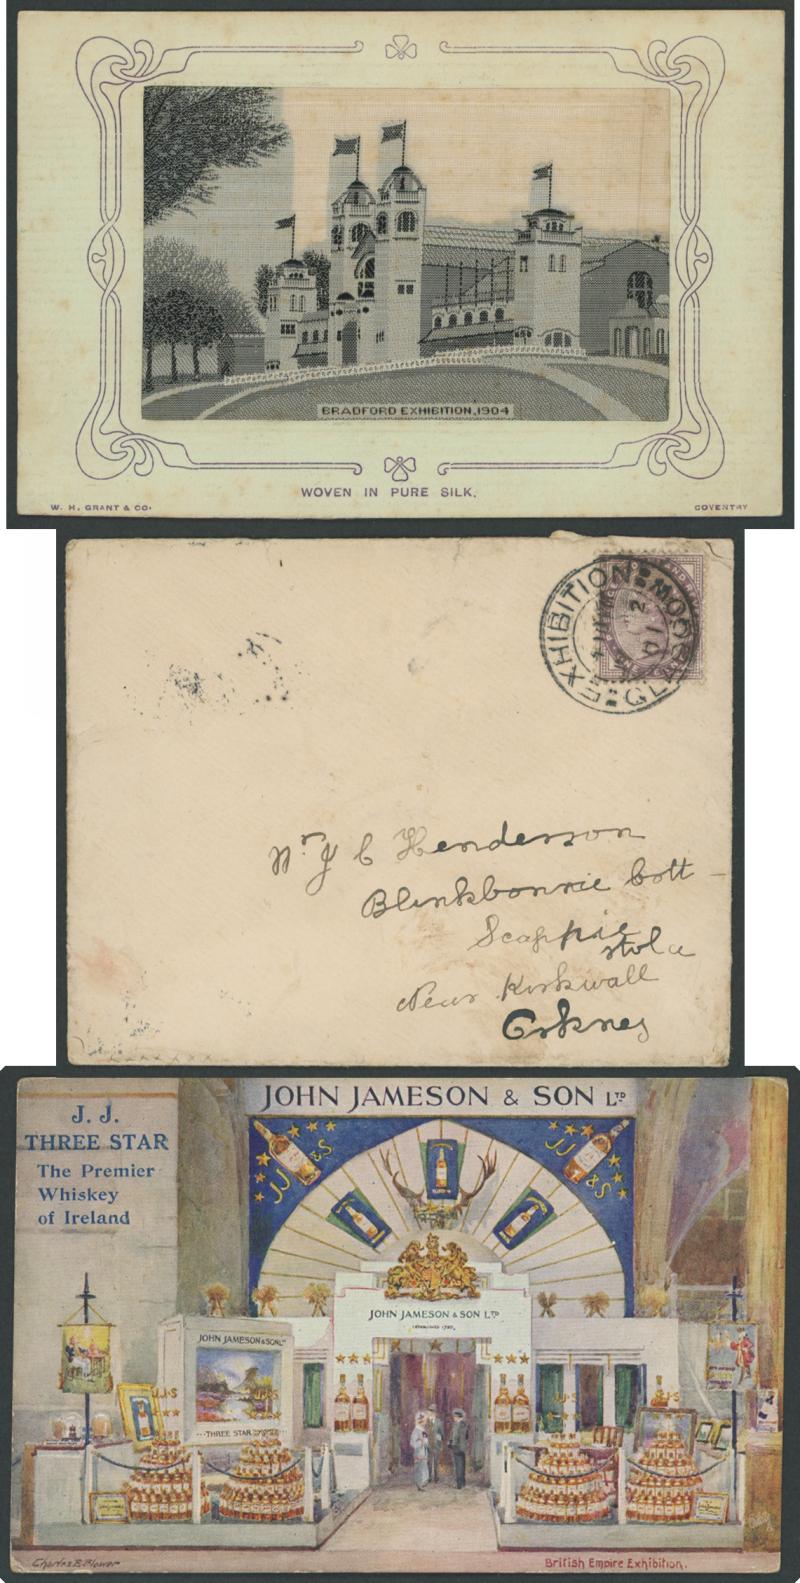 BRADFORD EXHIBITION, 1904
WOVEN IN PURE SILK.
W. H. GRANT & CO.
COVENTRY
EXHIBITION
Mr J C Henderson
Blinkbonnie Cott
Near Kirkwall
Orkney
JOHN JAMESON & SON LTD
J. J.
THREE STAR
The Premier
Whiskey
of Ireland
JJ&S
JJ&S
JOHN JAMESON & SON LTD
ESTABLISHED 1780.
JOHN JAMESON & SON LTD
J.J.S
JJ&S
JJ&S
J.J.S
THREE STAR
Charles E. Flower
British Empire Exhibition.